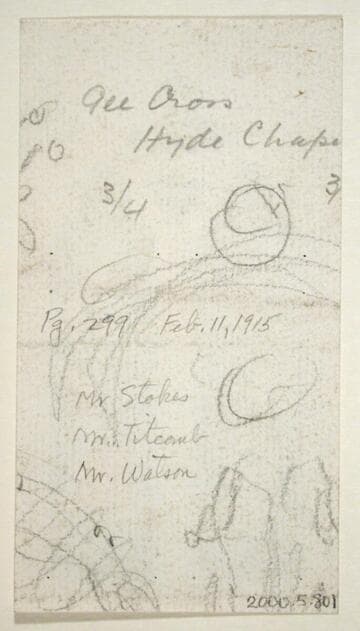 Gee Cross
Hyde Chape
3/4
3
Pg. 299 Feb. 11, 1915
Mr Stokes
Mr. Titcomb
Mr. Watson
2000.5.801